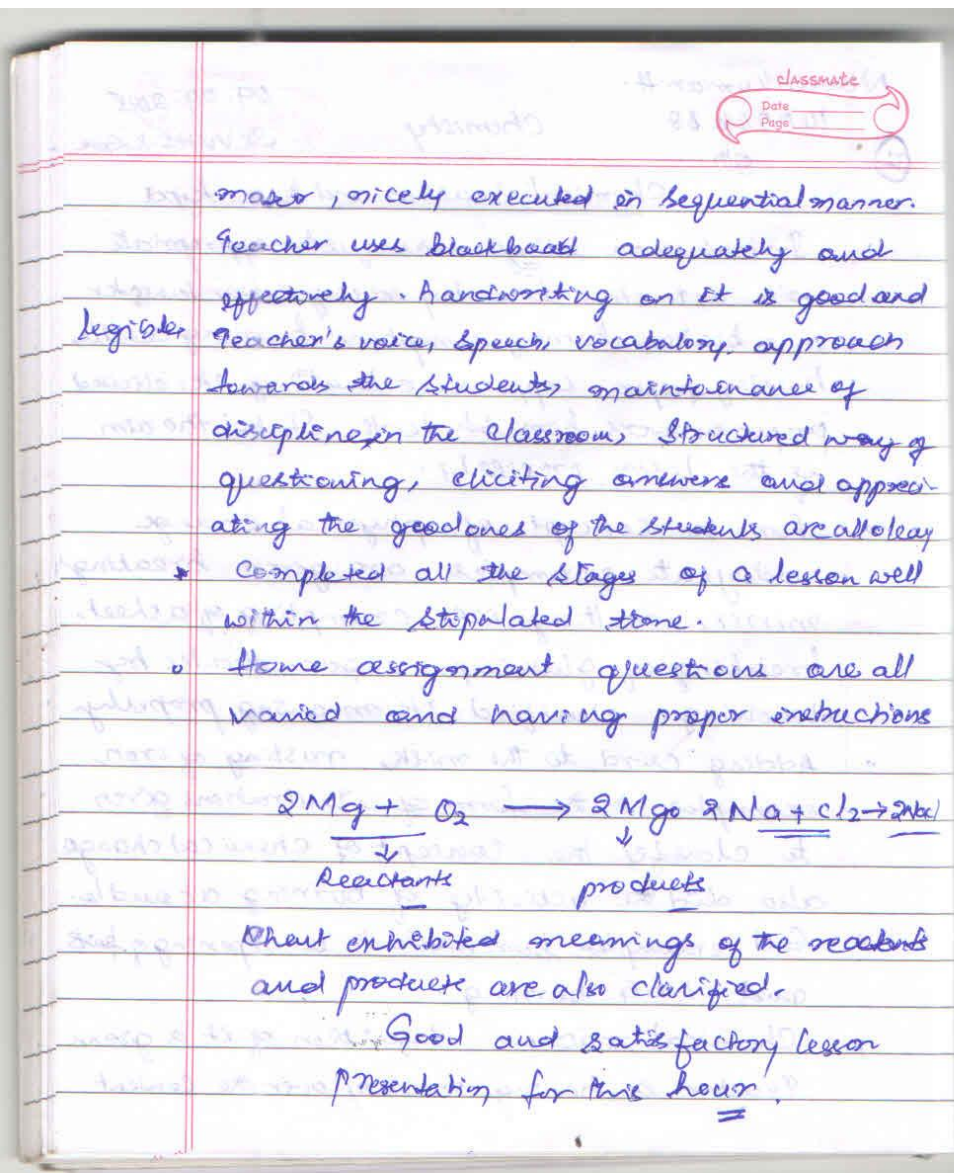 classmate
Date
Page
manner, nicely executed in sequential manner.
Teacher uses blackboard adequately and
effectively. Handwriting on it is good and
legible. Teacher's voice, speech, vocabulary approach
towards the students, maintainance of
discipline, in the classroom, structured way of
questioning, eliciting answers and appreci-
ating the good ones of the students are all okay
* Completed all the stages of a lesson well
within the stipulated time.
o Home assignment questions are all
varied and having proper instructions
2Mg + O₂ → 2Mgo 2Na + Cl₂ → 2Nacl
↓ ↓
Reactants products
Chart exhibited meanings of the reactants
and products are also clarified.
Good and satisfactory lesson
presentation for this hour.